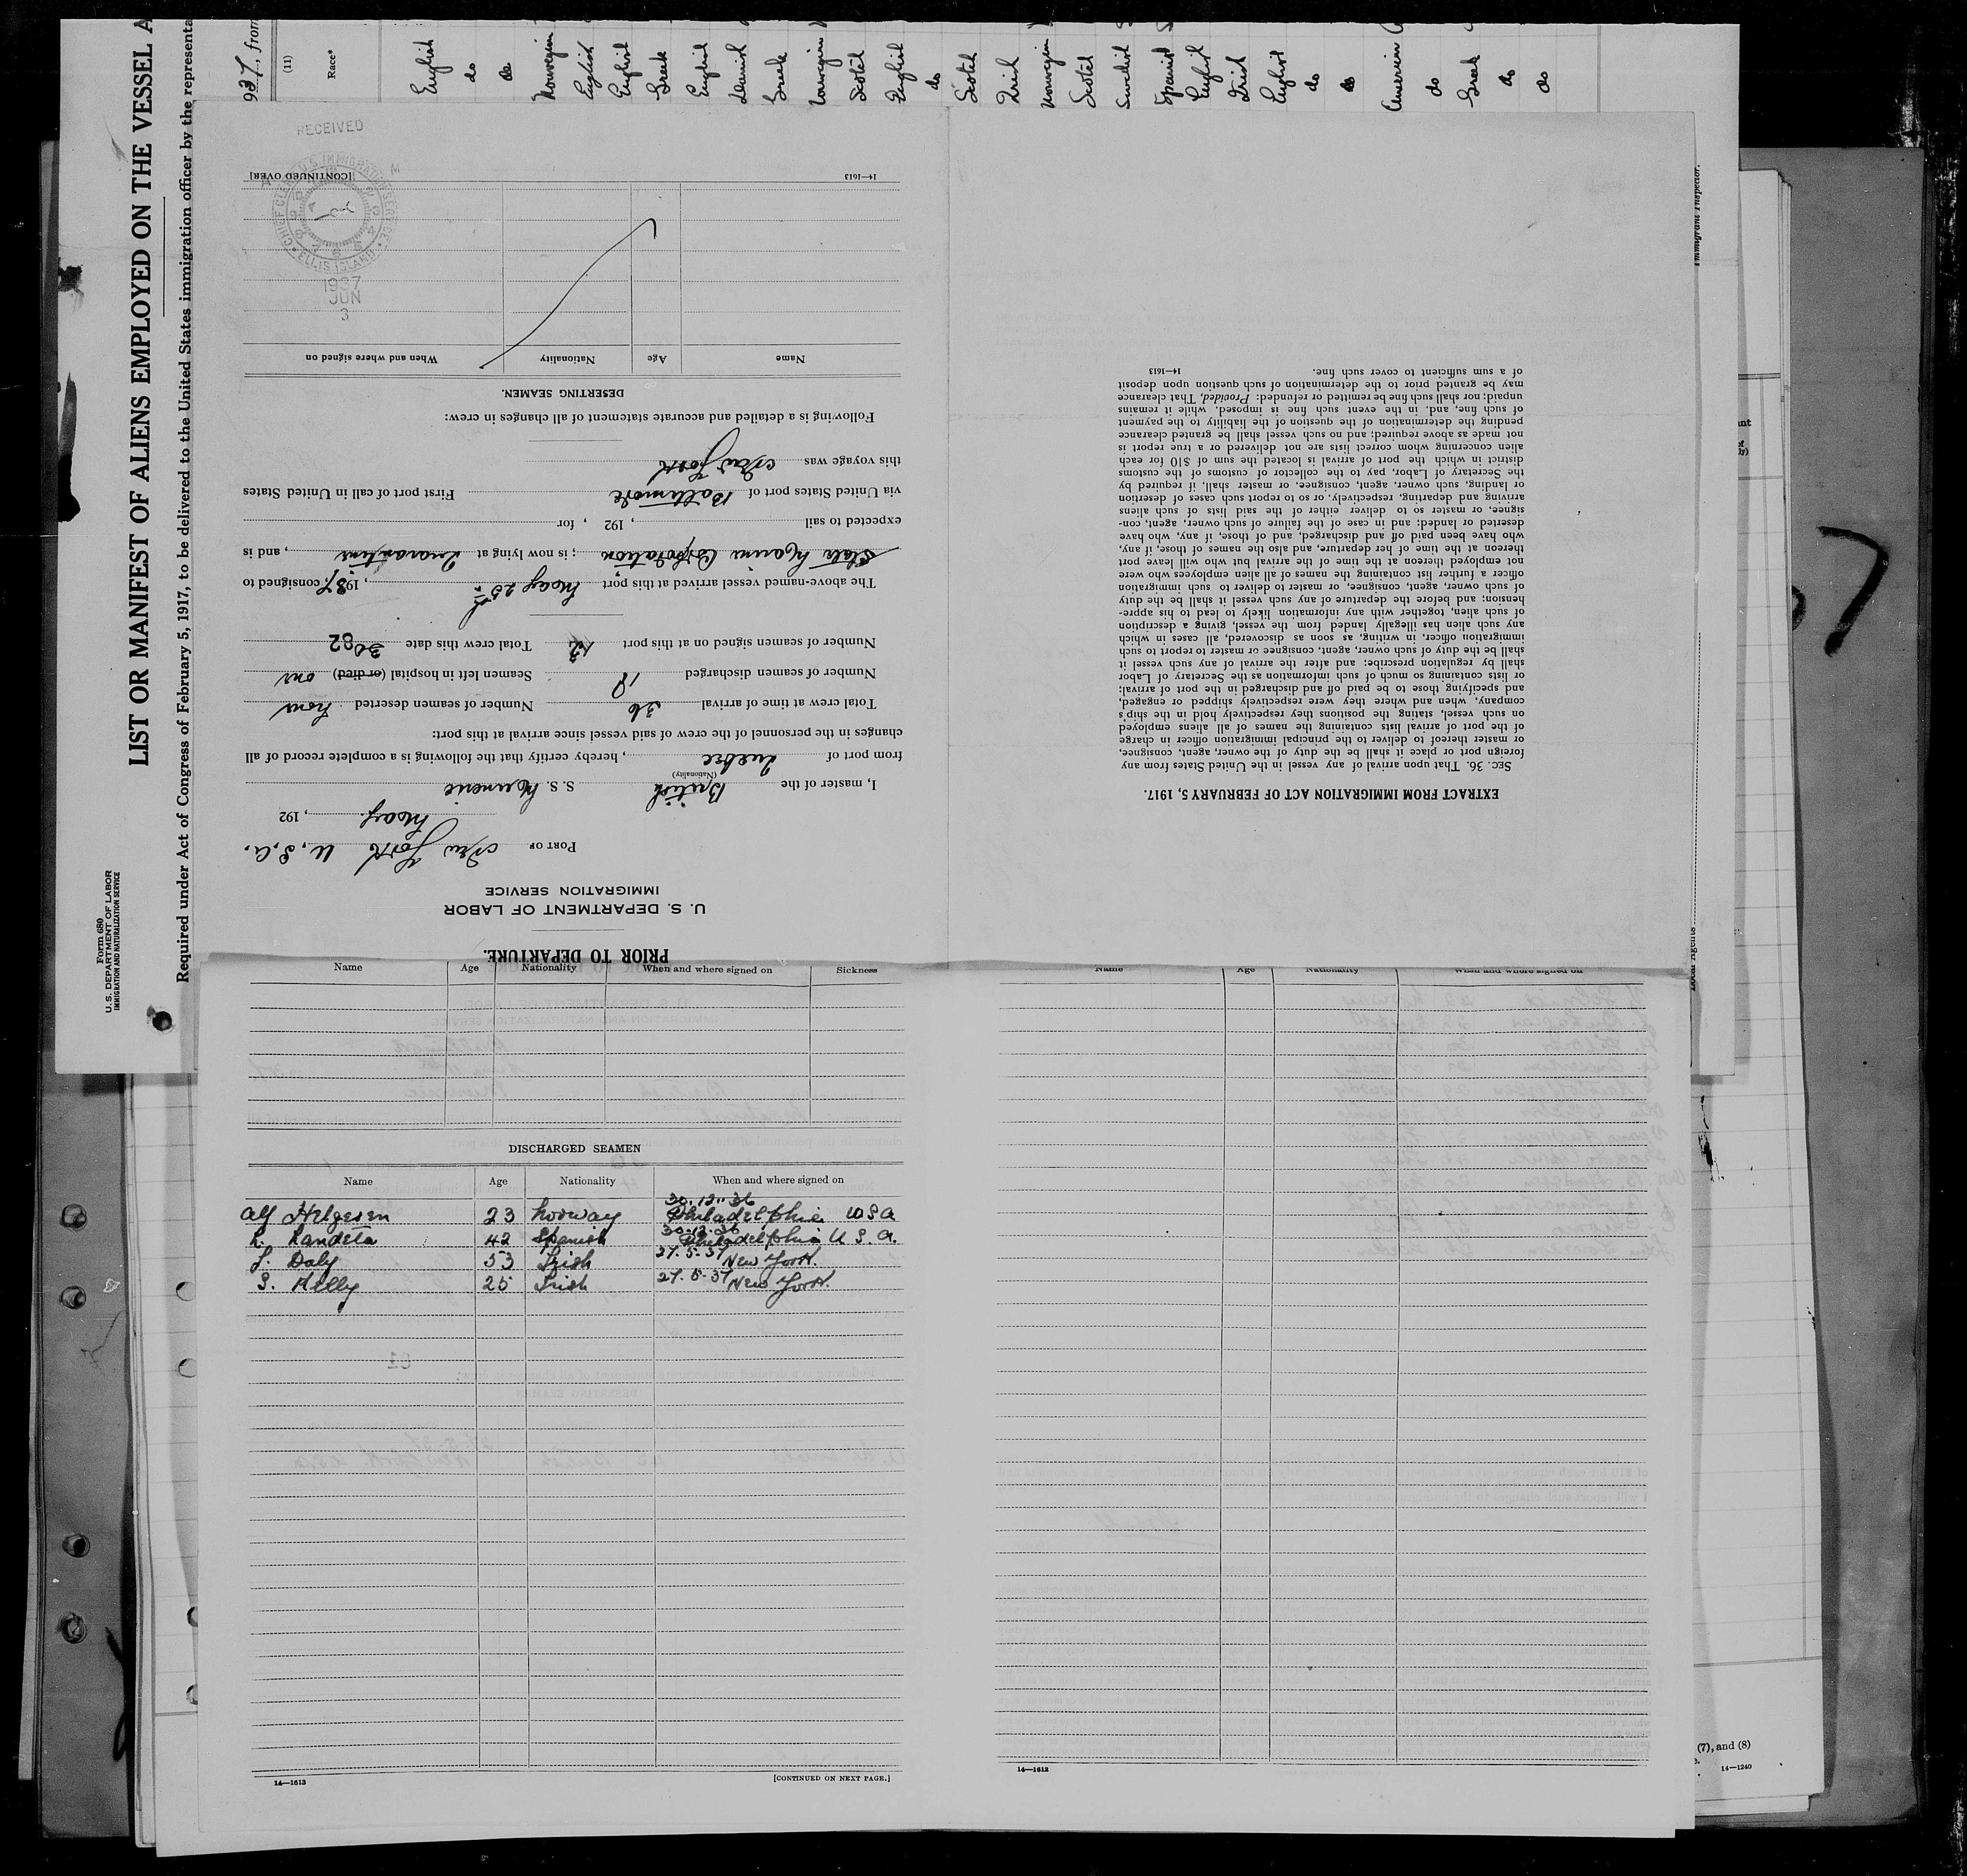 Form 680
U. S. DEPARTMENT OF LABOR
IMMIGRATION AND NATURALIZATION SERVICE
LIST OR MANIFEST OF ALIENS EMPLOYED ON THE VESSEL A
Required under Act of Congress of February 5, 1917, to be delivered to the United States immigration officer by the representa
937, from
(11)
Race*
English
do
do
Norwegian
English
English
Greek
English
Danish
Greek
Norwegian
Scotch
English
do
Scotch
Irish
Norwegian
Scotch
Swedish
Spanish
English
Irish
English
do
do
American
do
Greek
do
do
Immigrant Inspector.
PRIOR TO DEPARTURE.
U. S. DEPARTMENT OF LABOR
IMMIGRATION SERVICE
PORT OF New York U. S. A.
May, 192
I, master of the British S. S.
(Nationality)
from port of Quebec, hereby certify that the following is a complete record of all
changes in the personnel of the crew of said vessel since arrival at this port:
Total crew at time of arrival 36 Number of seamen deserted none
Number of seamen discharged 18 Seamen left in hospital (or died) one
Number of seamen signed on at this port Total crew this date
The above-named vessel arrived at this port May 25th, 1937, consigned to
States Marine Corporation; is now lying at Quarantine, and is
expected to sail , 192 , for
via United States port of Baltimore First port of call in United States
this voyage was New York
Following is a detailed and accurate statement of all changes in crew:
DESERTING SEAMEN.
Name Age Nationality When and where signed on
14—1613 [CONTINUED OVER]
RECEIVED
CHIEF CLERK U.S. IMMIGRATION SERVICE
ELLIS ISLAND
1937
JUN
3
EXTRACT FROM IMMIGRATION ACT OF FEBRUARY 5, 1917.
SEC. 36. That upon arrival of any vessel in the United States from any
foreign port or place it shall be the duty of the owner, agent, consignee,
or master thereof to deliver to the principal immigration officer in charge
of the port of arrival lists containing the names of all aliens employed
on such vessel, stating the positions they respectively hold in the ship's
company, when and where they were respectively shipped or engaged,
and specifying those to be paid off and discharged in the port of arrival;
or lists containing so much of such information as the Secretary of Labor
shall by regulation prescribe; and after the arrival of any such vessel it
shall be the duty of such owner, agent, consignee or master to report to such
immigration officer, in writing, as soon as discovered, all cases in which
any such alien has illegally landed from the vessel, giving a description
of such alien, together with any information likely to lead to his appre-
hension; and before the departure of any such vessel it shall be the duty
of such owner, agent, consignee, or master to deliver to such immigration
officer a further list containing the names of all alien employees who were
not employed thereon at the time of the arrival but who will leave port
thereon at the time of her departure, and also the names of those, if any,
who have been paid off and discharged, and of those, if any, who have
deserted or landed; and in case of the failure of such owner, agent, con-
signee, or master so to deliver either of the said lists of such aliens
arriving and departing, respectively, or so to report such cases of desertion
or landing, such owner, agent, consignee, or master shall, if required by
the Secretary of Labor, pay to the collector of customs of the customs
district in which the port of arrival is located the sum of $10 for each
alien concerning whom correct lists are not delivered or a true report is
not made as above required; and no such vessel shall be granted clearance
pending the determination of the question of the liability to the payment
of such fine, and, in the event such fine is imposed, while it remains
unpaid; nor shall such fine be remitted or refunded: Provided, That clearance
may be granted prior to the determination of such question upon deposit
of a sum sufficient to cover such fine.
14—1613
Name Age Nationality When and where signed on Sickness
DISCHARGED SEAMEN
Name Age Nationality When and where signed on
Alf Helgesen 23 Norway 30.12.36 Philadelphia USA
L. Landeta 42 Spanish 30-12-36 Philadelphia U. S. A.
J. Daly 53 Irish 27.5.37 New York.
S. Kelly 25 Irish 27.5.37 New York.
14—1613 [CONTINUED ON NEXT PAGE.]
Name Age Nationality When and where signed on
14—1612
(7), and (8)
14—1240